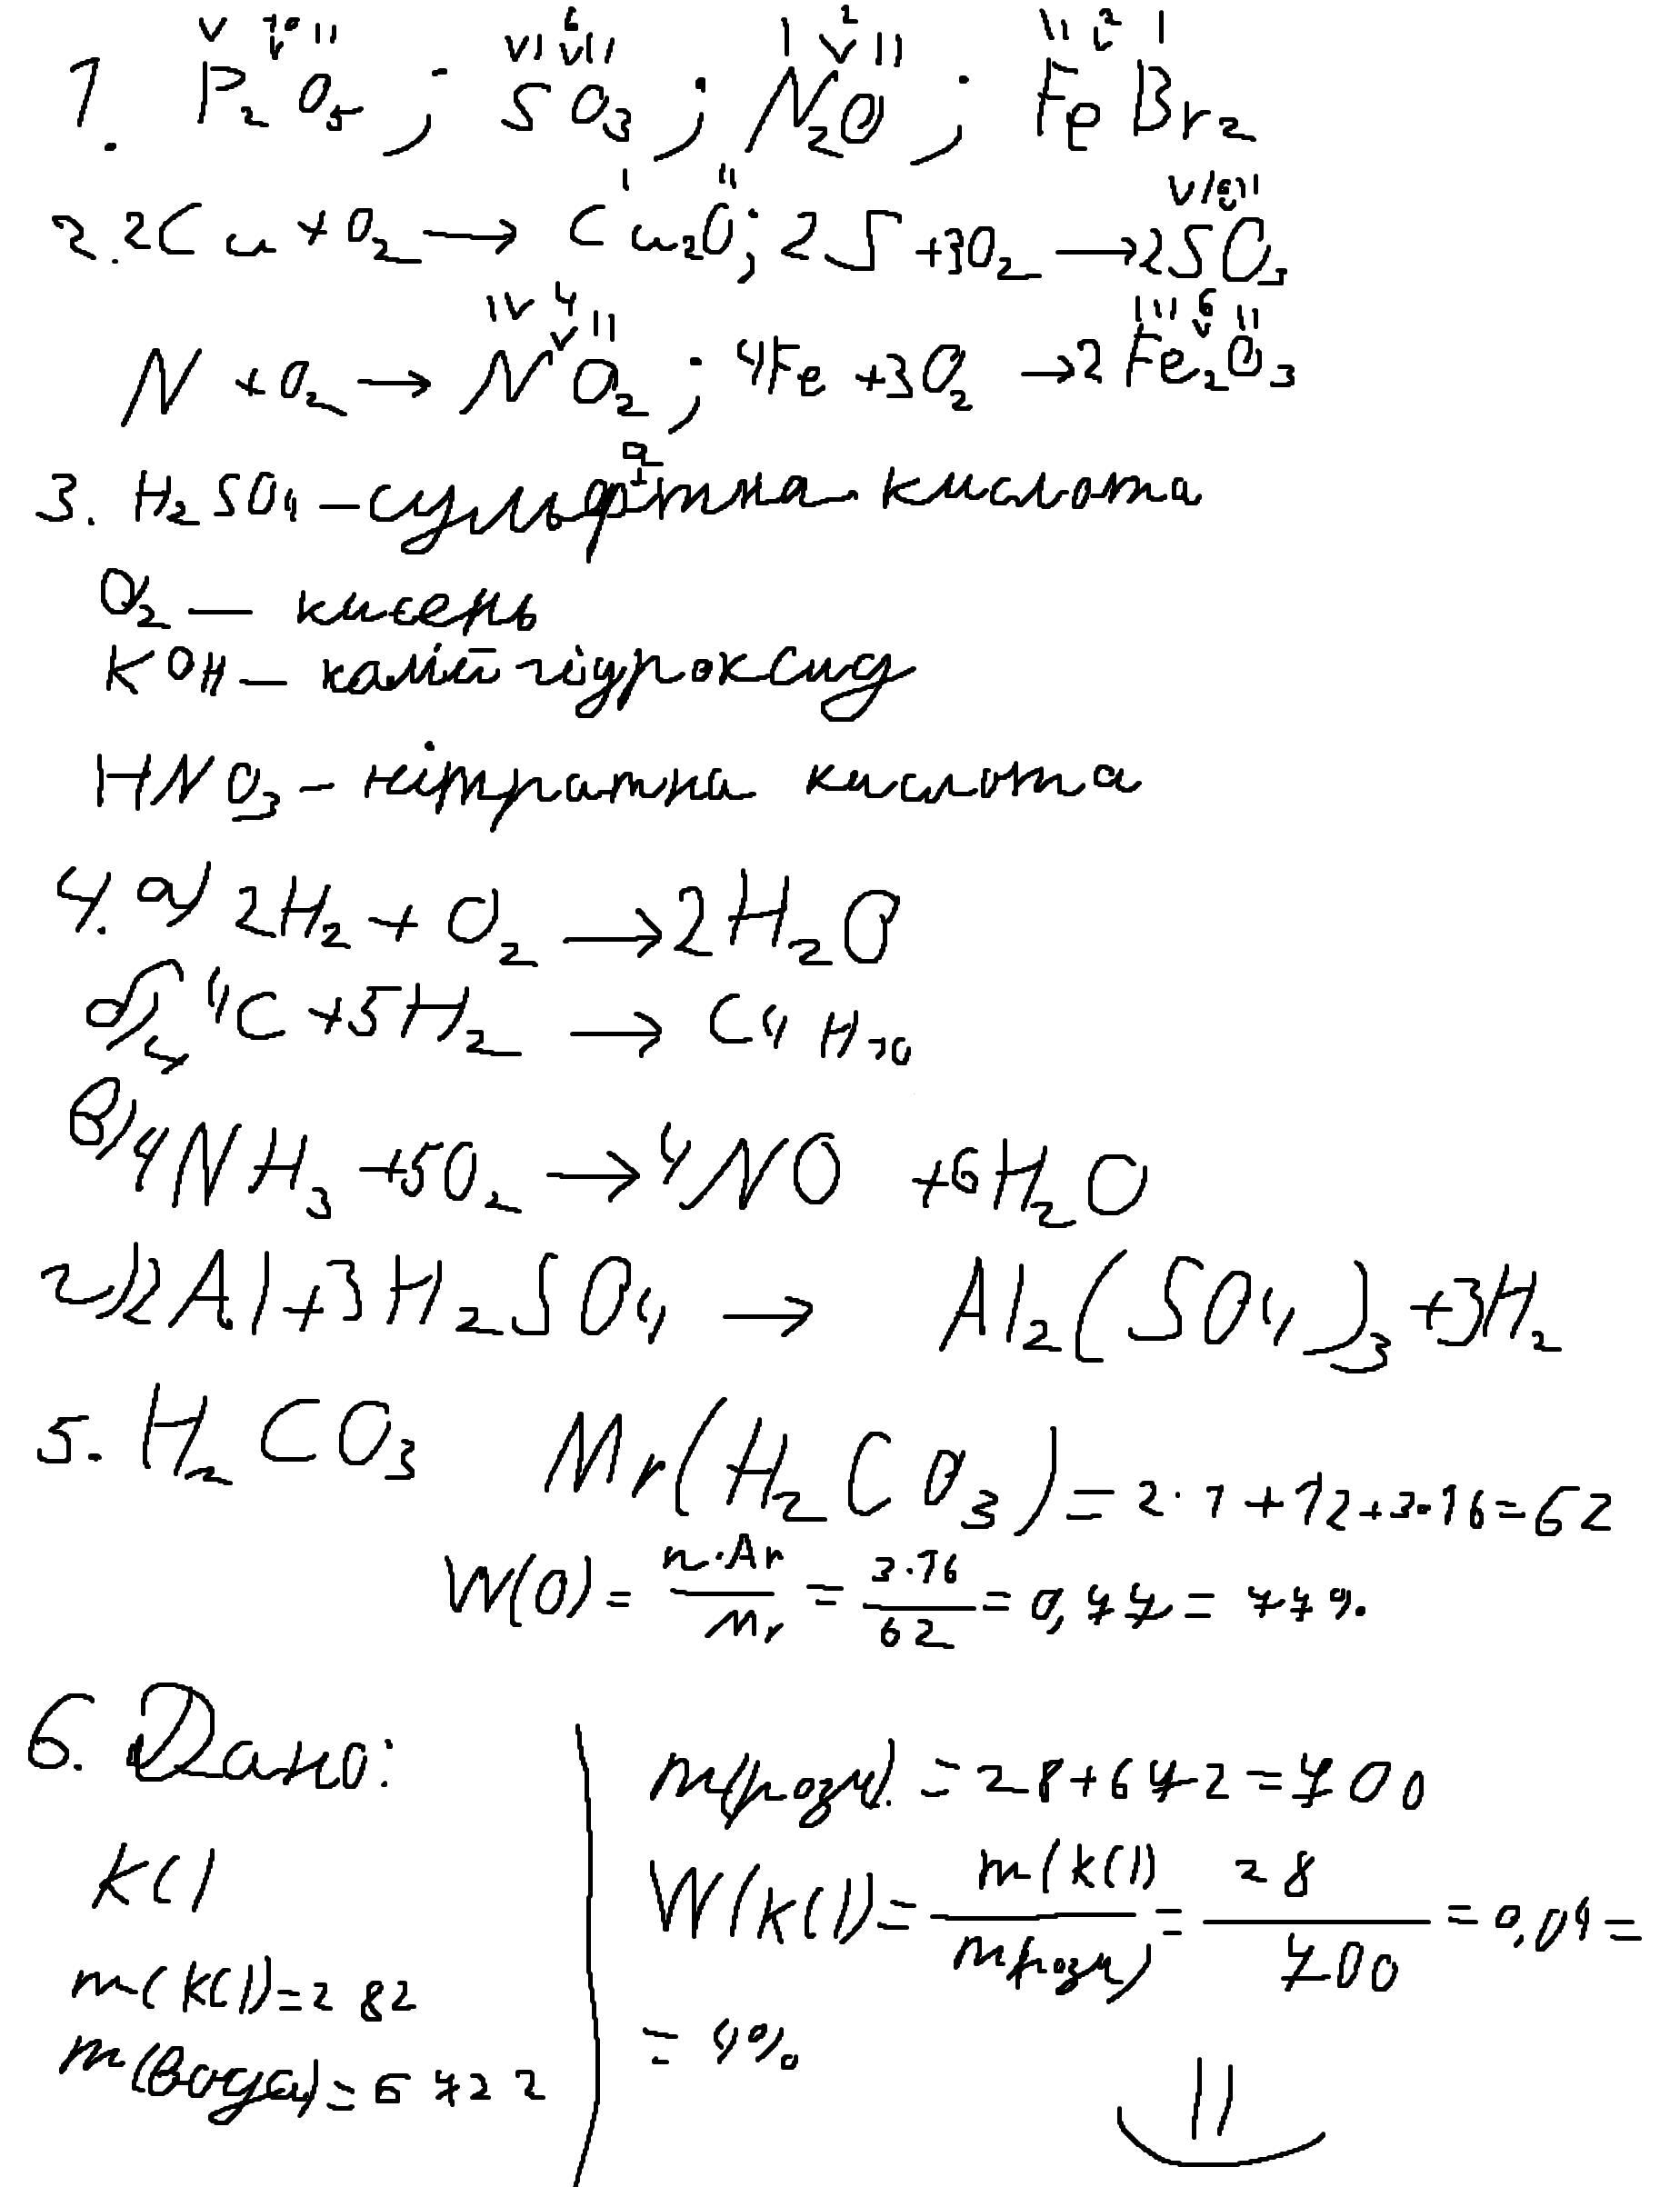 V 10 II VI 6 II I 2 II II 2 I
1. P₂O₅; SO₃; N₂O; FeBr₂
I II VI 6 II
2. 2Cu + O₂ → Cu₂O; 2S + 3O₂ → 2SO₃
IV 4 II III 6 II
N + O₂ → NO₂; 4Fe + 3O₂ → 2Fe₂O₃
3. H₂SO₄ – сульфатна кислота
O₂ – кисень
KOH – калій гідроксид
HNO₃ – нітратна кислота
4. а) 2H₂ + O₂ → 2H₂O
б) 4C + 5H₂ → C₄H₁₀
в) 4NH₃ + 5O₂ → 4NO + 6H₂O
г) 2Al + 3H₂SO₄ → Al₂(SO₄)₃ + 3H₂
5. H₂CO₃ Mr(H₂CO₃) = 2·1 + 12 + 3·16 = 62
W(O) = n·Ar / Mr = 3·16 / 62 = 0,77 = 77%
6. Дано:
KCl
m(KCl) = 28г
m(вода) = 672г
m(розч.) = 28 + 672 = 700
W(KCl) = m(KCl) / m(розч) = 28 / 700 = 0,04 =
= 4%